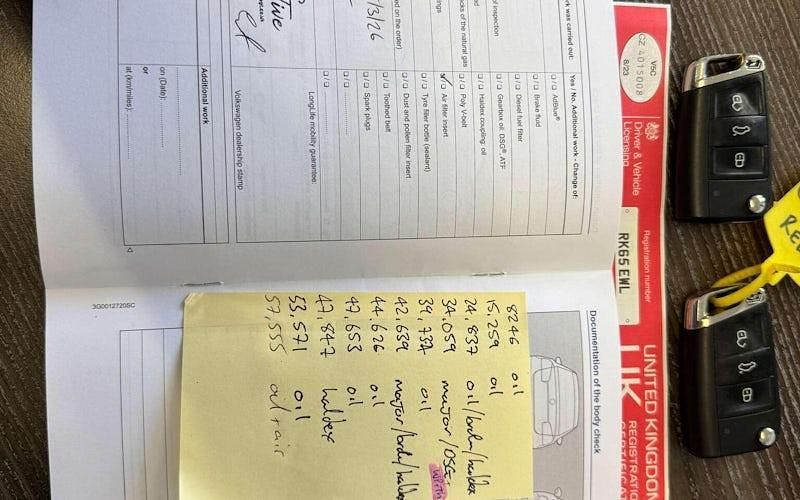 rk was carried out:
Yes / No. Additional work - Change of:
of inspection
AdBlue®
Brake fluid
Diesel fuel filter
Gearbox oil: DSG®, ATF
Haldex coupling: oil
cks of the natural gas
Poly V-belt
ngs
Air filter insert
Tyre filler bottle (sealant)
ed on the order)
Dust and pollen filter insert
/3/26
Toothed belt
Spark plugs
LongLife mobility guarantee:
Volkswagen dealership stamp
Additional work
on (Date):
or
at (km/miles):
3G0012720SC
Documentation of the body check
8246 oil
15,259 oil
24,837 oil/brake/haldex
34,059 major/DSG
39,737 oil
42,639 major/brake/haldex
44,626 oil
47,653 oil
47,847 haldex
53,571 oil
57,555 oil + air
V5C
CZ 4015008
8/23
Driver & Vehicle
Licensing
Registration number
RK65EWL
UNITED KINGDOM
UK
REGISTRATION
CERTIFIC